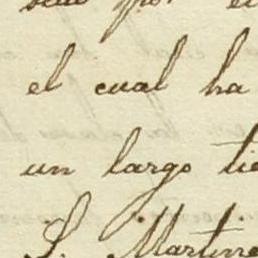 por
el cual ha
un largo tie
S. Martine